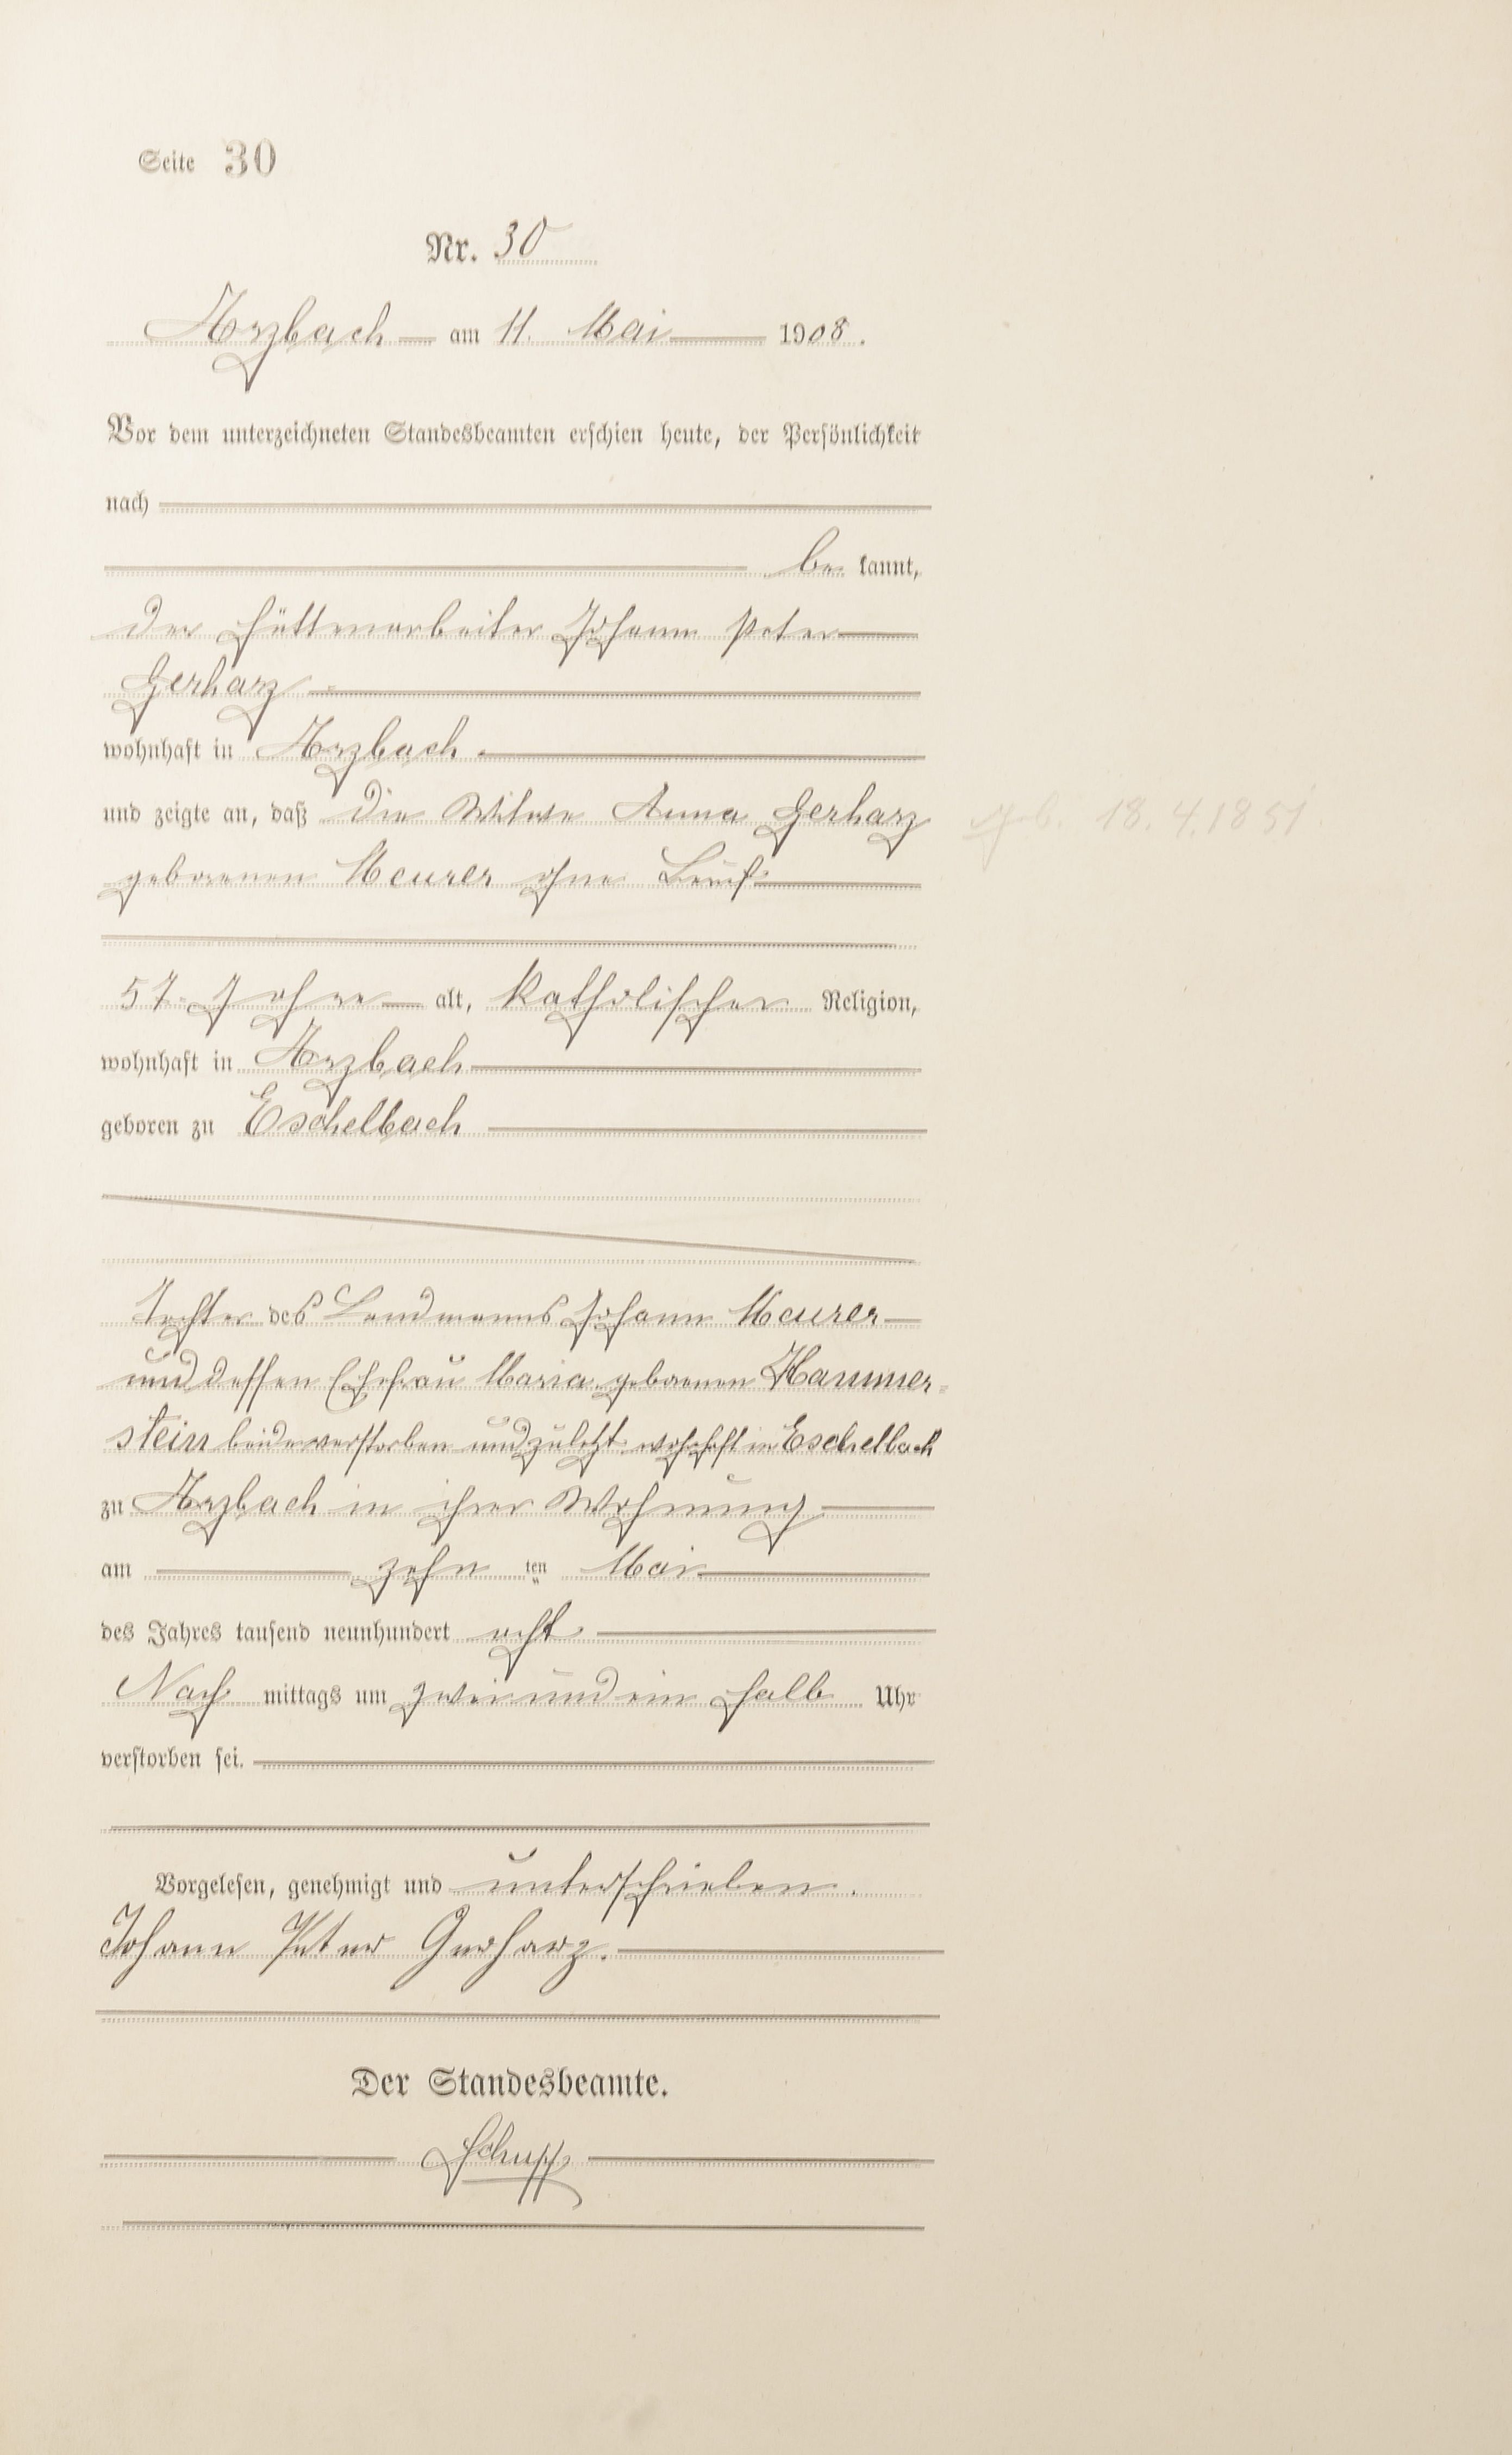 Seite 30
Nr. 30
Arzbach am 11. Mai 1908.
Vor dem unterzeichneten Standesbeamten erschien heute, der Persönlichkeit
nach
be kannt,
der Hüttenarbeiter Johann Peter
Gerharz
wohnhaft in Arzbach
und zeigte an, daß die Witwe Anna Gerharz
geb. 18.4.1851
geborenen Meurer ohne Beruf
57 Jahre alt, katholischer Religion,
wohnhaft in Arzbach
geboren zu Eschelbach
Tochter des Landmanns Johann Meurer
und dessen Ehefrau Maria geborenen Hammer-
stein beide verstorben und zuletzt wohnhaft in Eschelbach
zu Arzbach in ihrer Wohnung
am zehn ten Mai
des Jahres tausend neunhundert acht
Nach mittags um zwei und ein halb Uhr
verstorben sei.
Vorgelesen, genehmigt und unterschrieben.
Johann Peter Gerharz.
Der Standesbeamte.
Schupp